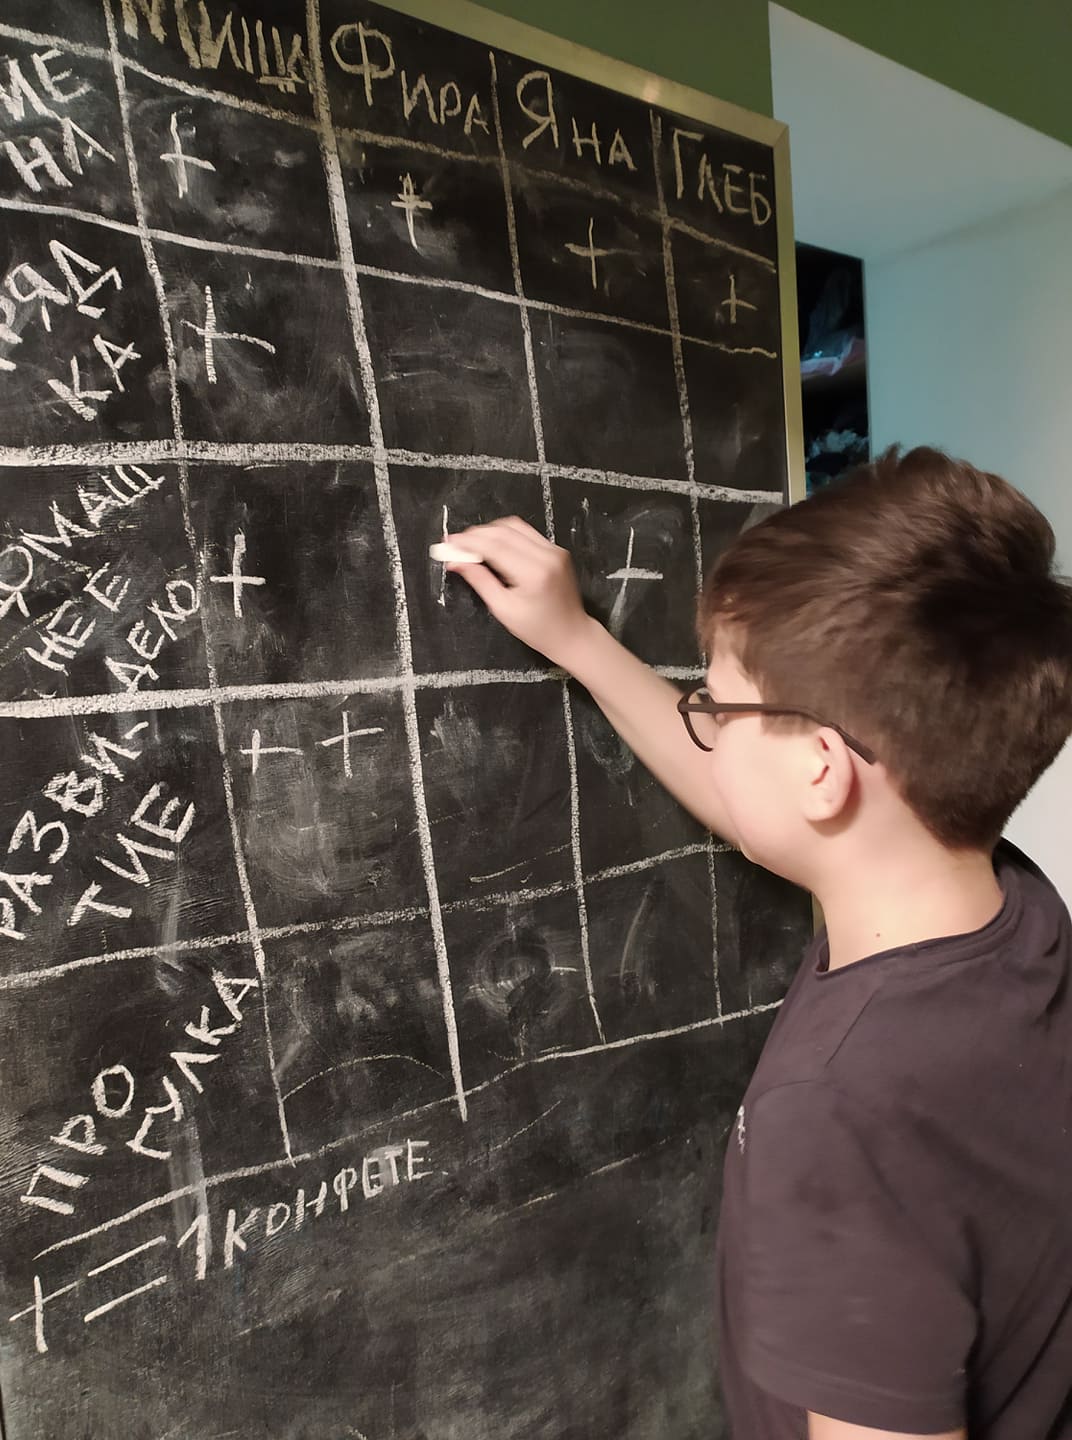 Миша Фира Яна Глеб
+ + + +
РЯД
КА
+
ДОМАШ
НЕЕ
ДЕЛО
+ +
РАЗВИ-
ТИЕ
+ +
ПРО
ГУЛКА
+ = 1 КОНФЕТЕ